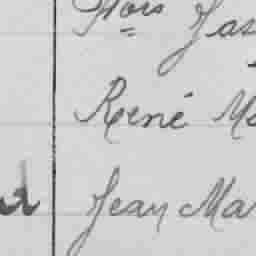 Flois Jas
René Ma
Jean Mar